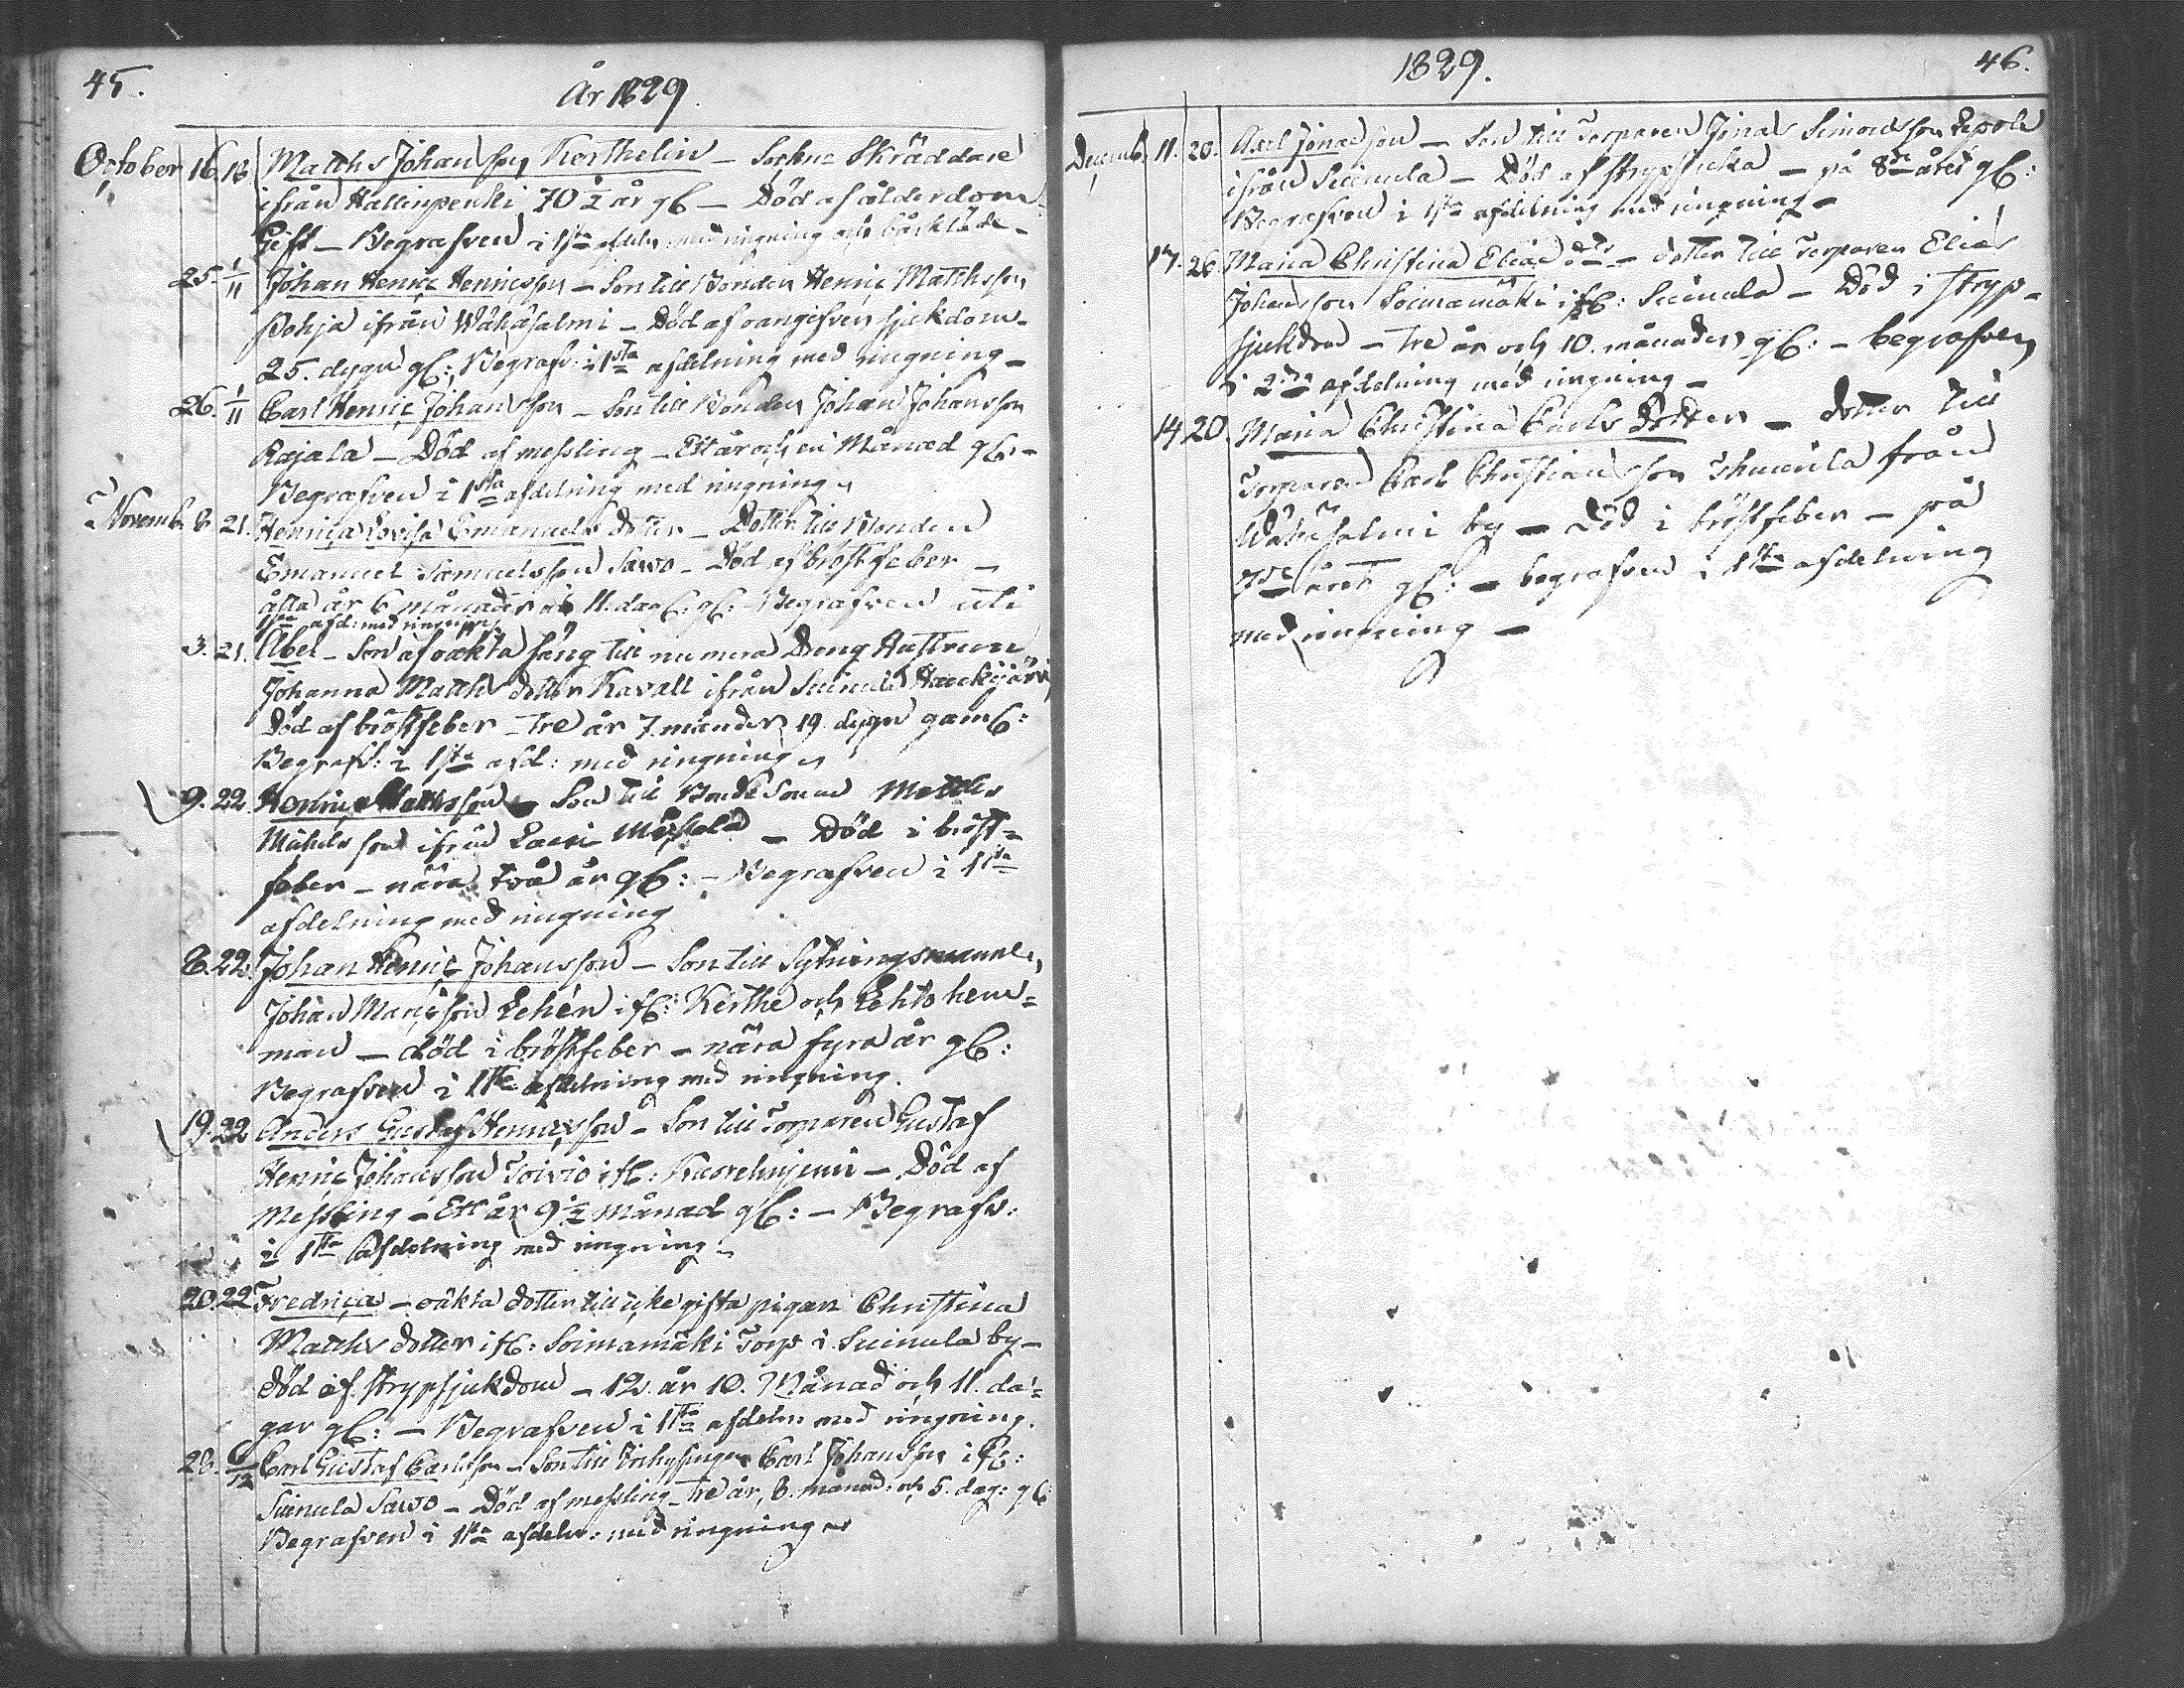 45.
År 1829.
October 16. 18. Matths Johansson Kerthelin – Sockne Skräddare
ifrån Hallinpenki 70 ½ år gl – Död af ålderdom –
Gift – Begrafven i 1sta afdeln: med ringning och bårkläde –
25. 1/11 Johan Henric Henricsson – Son till Bonden Henric Matthsson
Pohja ifrån Wåhäsalmi – Död af oangifven sjukdom –
25. dygn gl: Begrafv: i 1sta afdelning med ringning –
26. 1/11 Carl Henric Johansson – Son till Bonden Johan Johansson
Rajala – Död af messling – Ett år och en Månad gl: –
Begrafven i 1sta afdelning med ringning
Novemb. 8. 21. Henrica Lovisa Emanuels dotter – Dotter till Bonden
Emanuel Samuelsson Sawo – Död af bröstfeber –
åtta år 6 månader och 11. dag: gl: – Begrafven uti
1sta afd: med ringning
3. 21. Abel – Son af oäkta säng till numera Dreng Hustrun
Johanna Matths dotter Kavall ifrån Suinula
Död af bröstfeber – tre år 7. månader 19. dygn gaml:
Begrafv: i 1sta afd: med ringning
9. 22. Henric Mattsson – Son till Bonde Sonen Matths
Michelsson ifrån – Död i bröst=
feber – nära två år gl: – Begrafven i 1sta
afdelning med ringning
8. 22. Johan Henric Johansson – Son till Sytningsmannen
Johan Lehén ifl: Kerthe och Lehto hem=
man – död i bröstfeber – nära fyra år gl:
Begrafven i 1sta afdelning med ringning.
19. 22 Anders Gustaf Henricsson – Son till Torparen Gustaf
Henric Johansson Toivio ifl: – Död af
Messling – Ett år 9 ½ månad gl: – Begrafv:
i 1sta afdelning med ringning –
20. 22 Fredrica – oäkta dotter till icke gifta pigan Christina
Matths dotter ifl: Soimamäki Torp i Suinula by –
död af strypsjukdom – 12. år 10. Månad och 11. da=
gar gl: – Begrafven i 1sta afdeln: med ringning.
28. 6/12 Carl Gustaf Carlsson – Son till Inhysingen Carl Johansson ifl:
Suinula Sawo – Död af messling – tre år, 8. månad: och 5. dag: gl:
Begrafven i 1sta afdeln: med ringning
1829.
46.
Decemb. 11. 20. Axel Jonasson – Son till Torparen Jonas Simonsson Lepole
ifrån Suinula – Död af strypsjuka – på 8de året gl:
Begrafven i 1sta afdelning med ringning –
17. 26. Maria Christina Elias dotr – dotter till Torparen Elias
Johansson Soimamäki ifl: Suinula – Död i stryp=
sjukdom – tre år och 10. månader gl: – begrafven
i 2dra afdelning med ringning –
14 20. Maria Christina Carls dotter – dotter till
Torparen Carl Christiansson från
Wåhäsalmi by – Död i bröstfeber – på
7de året gl: – begrafven i 1sta afdelning
med ringning –